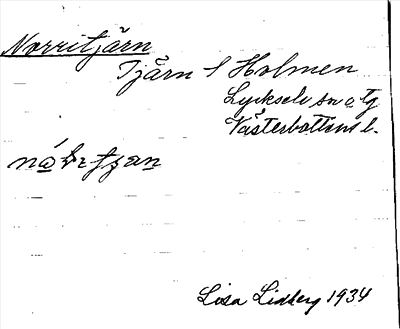 Norritjärn
Tjärn i Holmen
Lycksele sn o tg
Västerbottens l.
Lisa Lidberg 1934